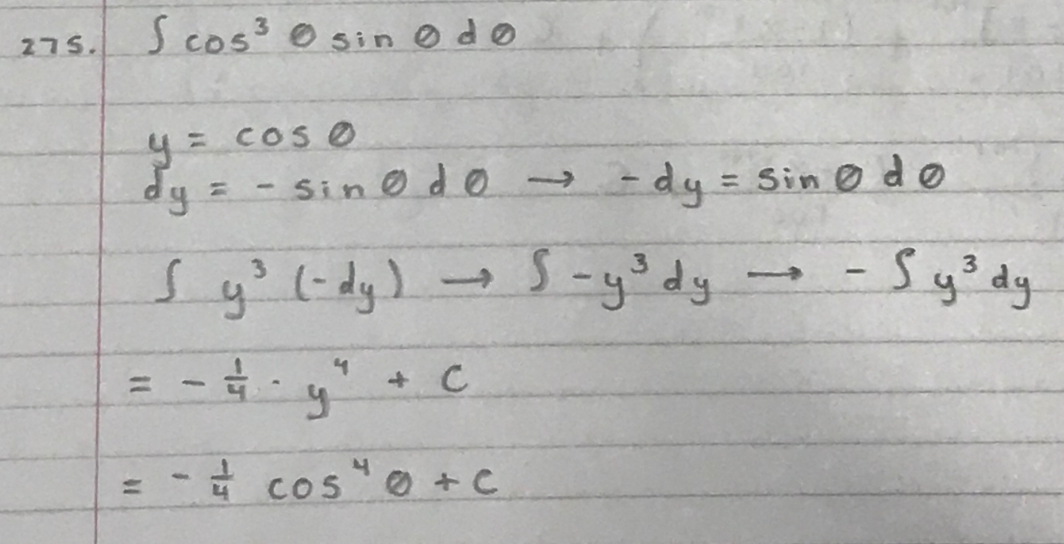 275. ∫ cos³ θ sin θ dθ
y = cos θ
dy = - sin θ dθ → - dy = sin θ dθ
∫ y³ (-dy) → ∫ -y³ dy → - ∫ y³ dy
= - 1/4 · y⁴ + C
= - 1/4 cos⁴ θ + C